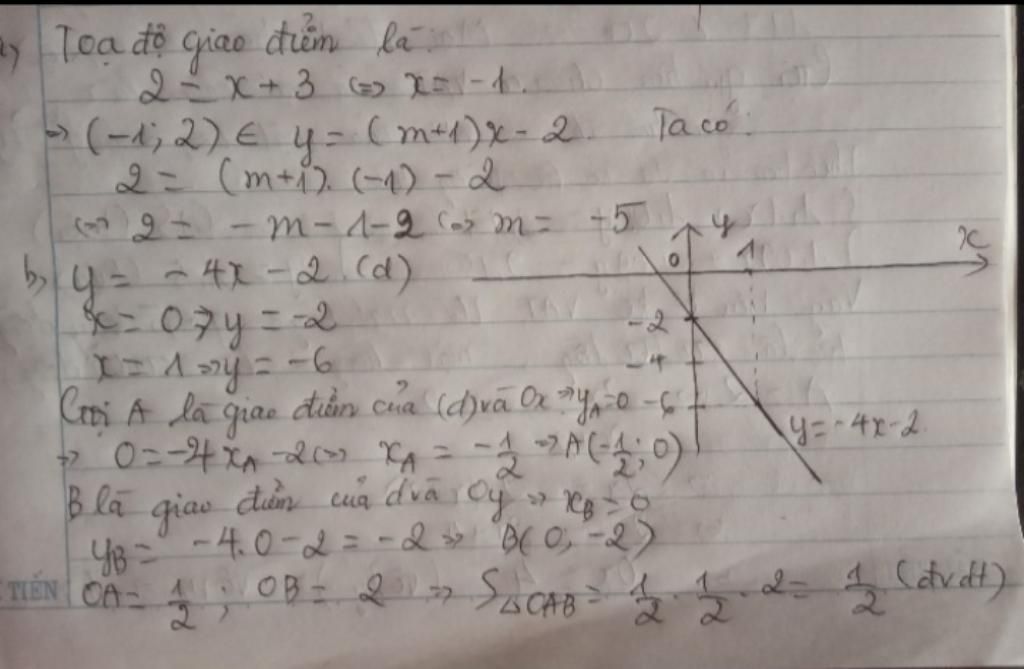 a) Toạ độ giao điểm là:
2 = x + 3 <=> x = -1.
=> (-1; 2) ∈ y = (m+1)x - 2. Ta có:
2 = (m+1). (-1) - 2
<=> 2 = -m - 1 - 2 <=> m = -5
b) y = -4x - 2 (d)
x = 0 => y = -2
x = 1 => y = -6
Gọi A là giao điểm của (d) và Ox => yA = 0
=> 0 = -4xA - 2 <=> xA = -1/2 => A(-1/2; 0)
B là giao điểm của d và Oy => xB = 0
yB = -4.0 - 2 = -2 => B(0, -2)
OA = 1/2; OB = 2 => S△OAB = 1/2 . 1/2 . 2 = 1/2 (đvdt)
y
x
0
1
-2
-4
-6
y = -4x - 2.
TIẾN